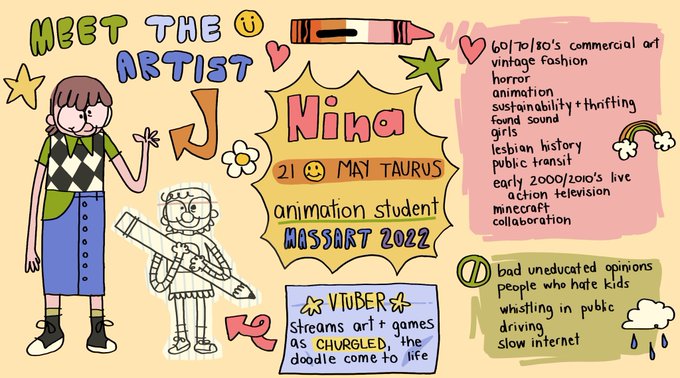 MEET THE
ARTIST
Nina
21 MAY TAURUS
animation student
MASSART 2022
VTUBER
streams art + games
as CHURGLED, the
doodle come to life
60/70/80's commercial art
vintage fashion
horror
animation
sustainability + thrifting
found sound
girls
lesbian history
public transit
early 2000/2010's live
action television
minecraft
collaboration
bad uneducated opinions
people who hate kids
whistling in public
driving
slow internet